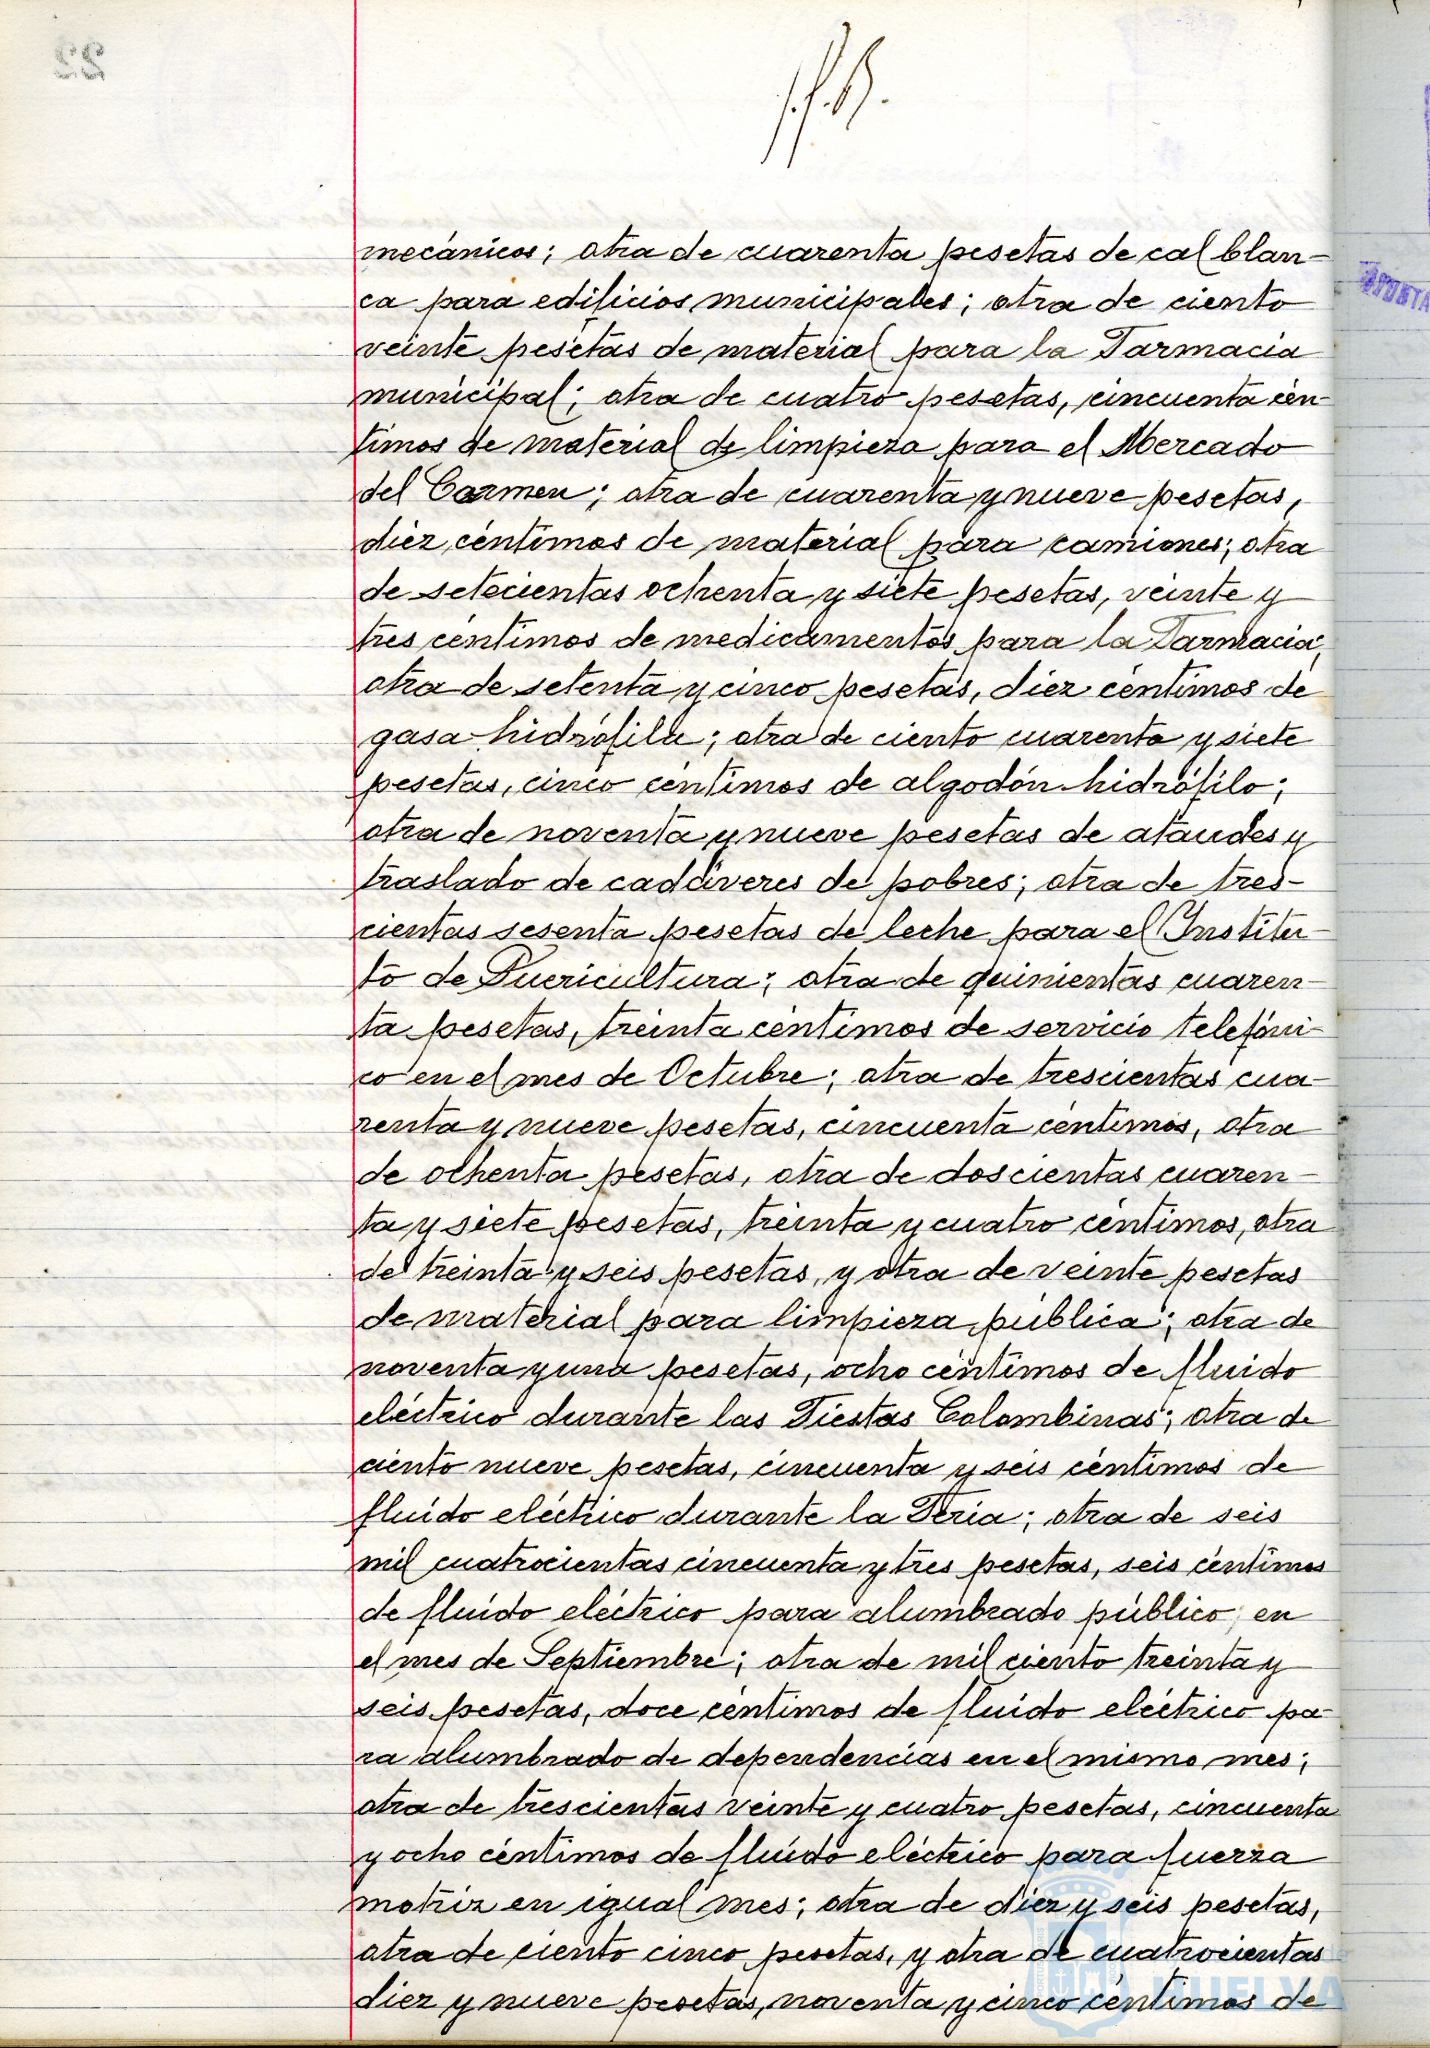 mecánicos; otra de cuarenta pesetas de cal blan-
ca para edificios municipales; otra de ciento
veinte pesetas de material para la Farmacia
municipal; otra de cuatro pesetas, cincuenta cén-
timos de material de limpieza para el Mercado
del Carmen; otra de cuarenta y nueve pesetas,
diez céntimos de material para camiones; otra
de setecientas ochenta y siete pesetas, veinte y
tres céntimos de medicamentos para la Farmacia;
otra de setenta y cinco pesetas, diez céntimos de
gasa hidrófila; otra de ciento cuarenta y siete
pesetas, cinco céntimos de algodón hidrófilo;
otra de noventa y nueve pesetas de ataudes y
traslado de cadáveres de pobres; otra de tres-
cientas sesenta pesetas de leche para el Institu-
to de Puericultura; otra de quinientas cuaren-
ta pesetas, treinta céntimos de servicio telefóni-
co en el mes de Octubre; otra de trescientas cua-
renta y nueve pesetas, cincuenta céntimos, otra
de ochenta pesetas, otra de doscientas cuaren-
ta y siete pesetas, treinta y cuatro céntimos, otra
de treinta y seis pesetas, y otra de veinte pesetas
de material para limpieza pública; otra de
noventa y una pesetas, ocho céntimos de fluido
eléctrico durante las Fiestas Colombinas; otra de
ciento nueve pesetas, cincuenta y seis céntimos de
fluído eléctrico durante la Feria; otra de seis
mil cuatrocientas cincuenta y tres pesetas, seis céntimos
de fluído eléctrico para alumbrado público, en
el mes de Septiembre; otra de mil ciento treinta y
seis pesetas, doce céntimos de fluído eléctrico pa-
ra alumbrado de dependencias en el mismo mes;
otra de trescientas veinte y cuatro pesetas, cincuenta
y ocho céntimos de fluído eléctrico para fuerza
motriz en igual mes; otra de diez y seis pesetas,
otra de ciento cinco pesetas, y otra de cuatrocientas
diez y nueve pesetas, noventa y cinco céntimos de
HUELVA
22